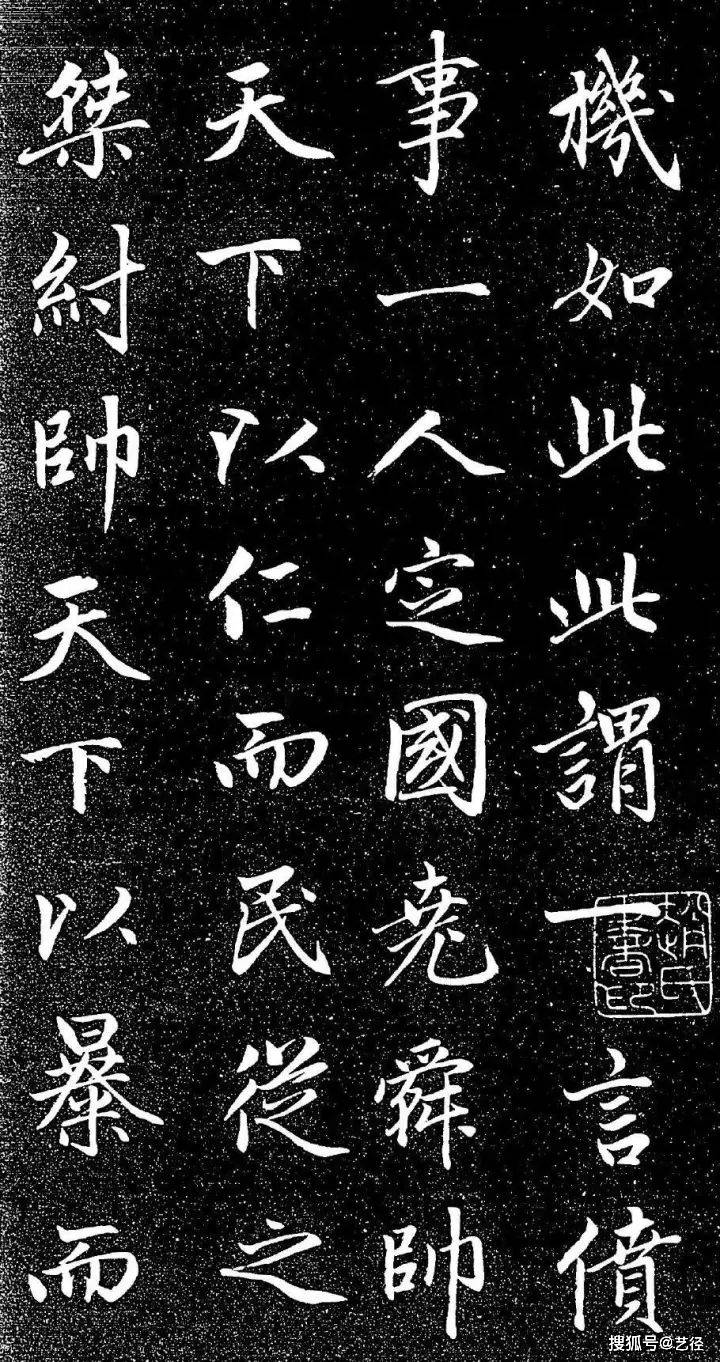 機如此此謂一言僨
事一人定國堯舜帥
天下以仁而民從之
桀紂帥天下以暴而
趙氏書印
搜狐号@艺径